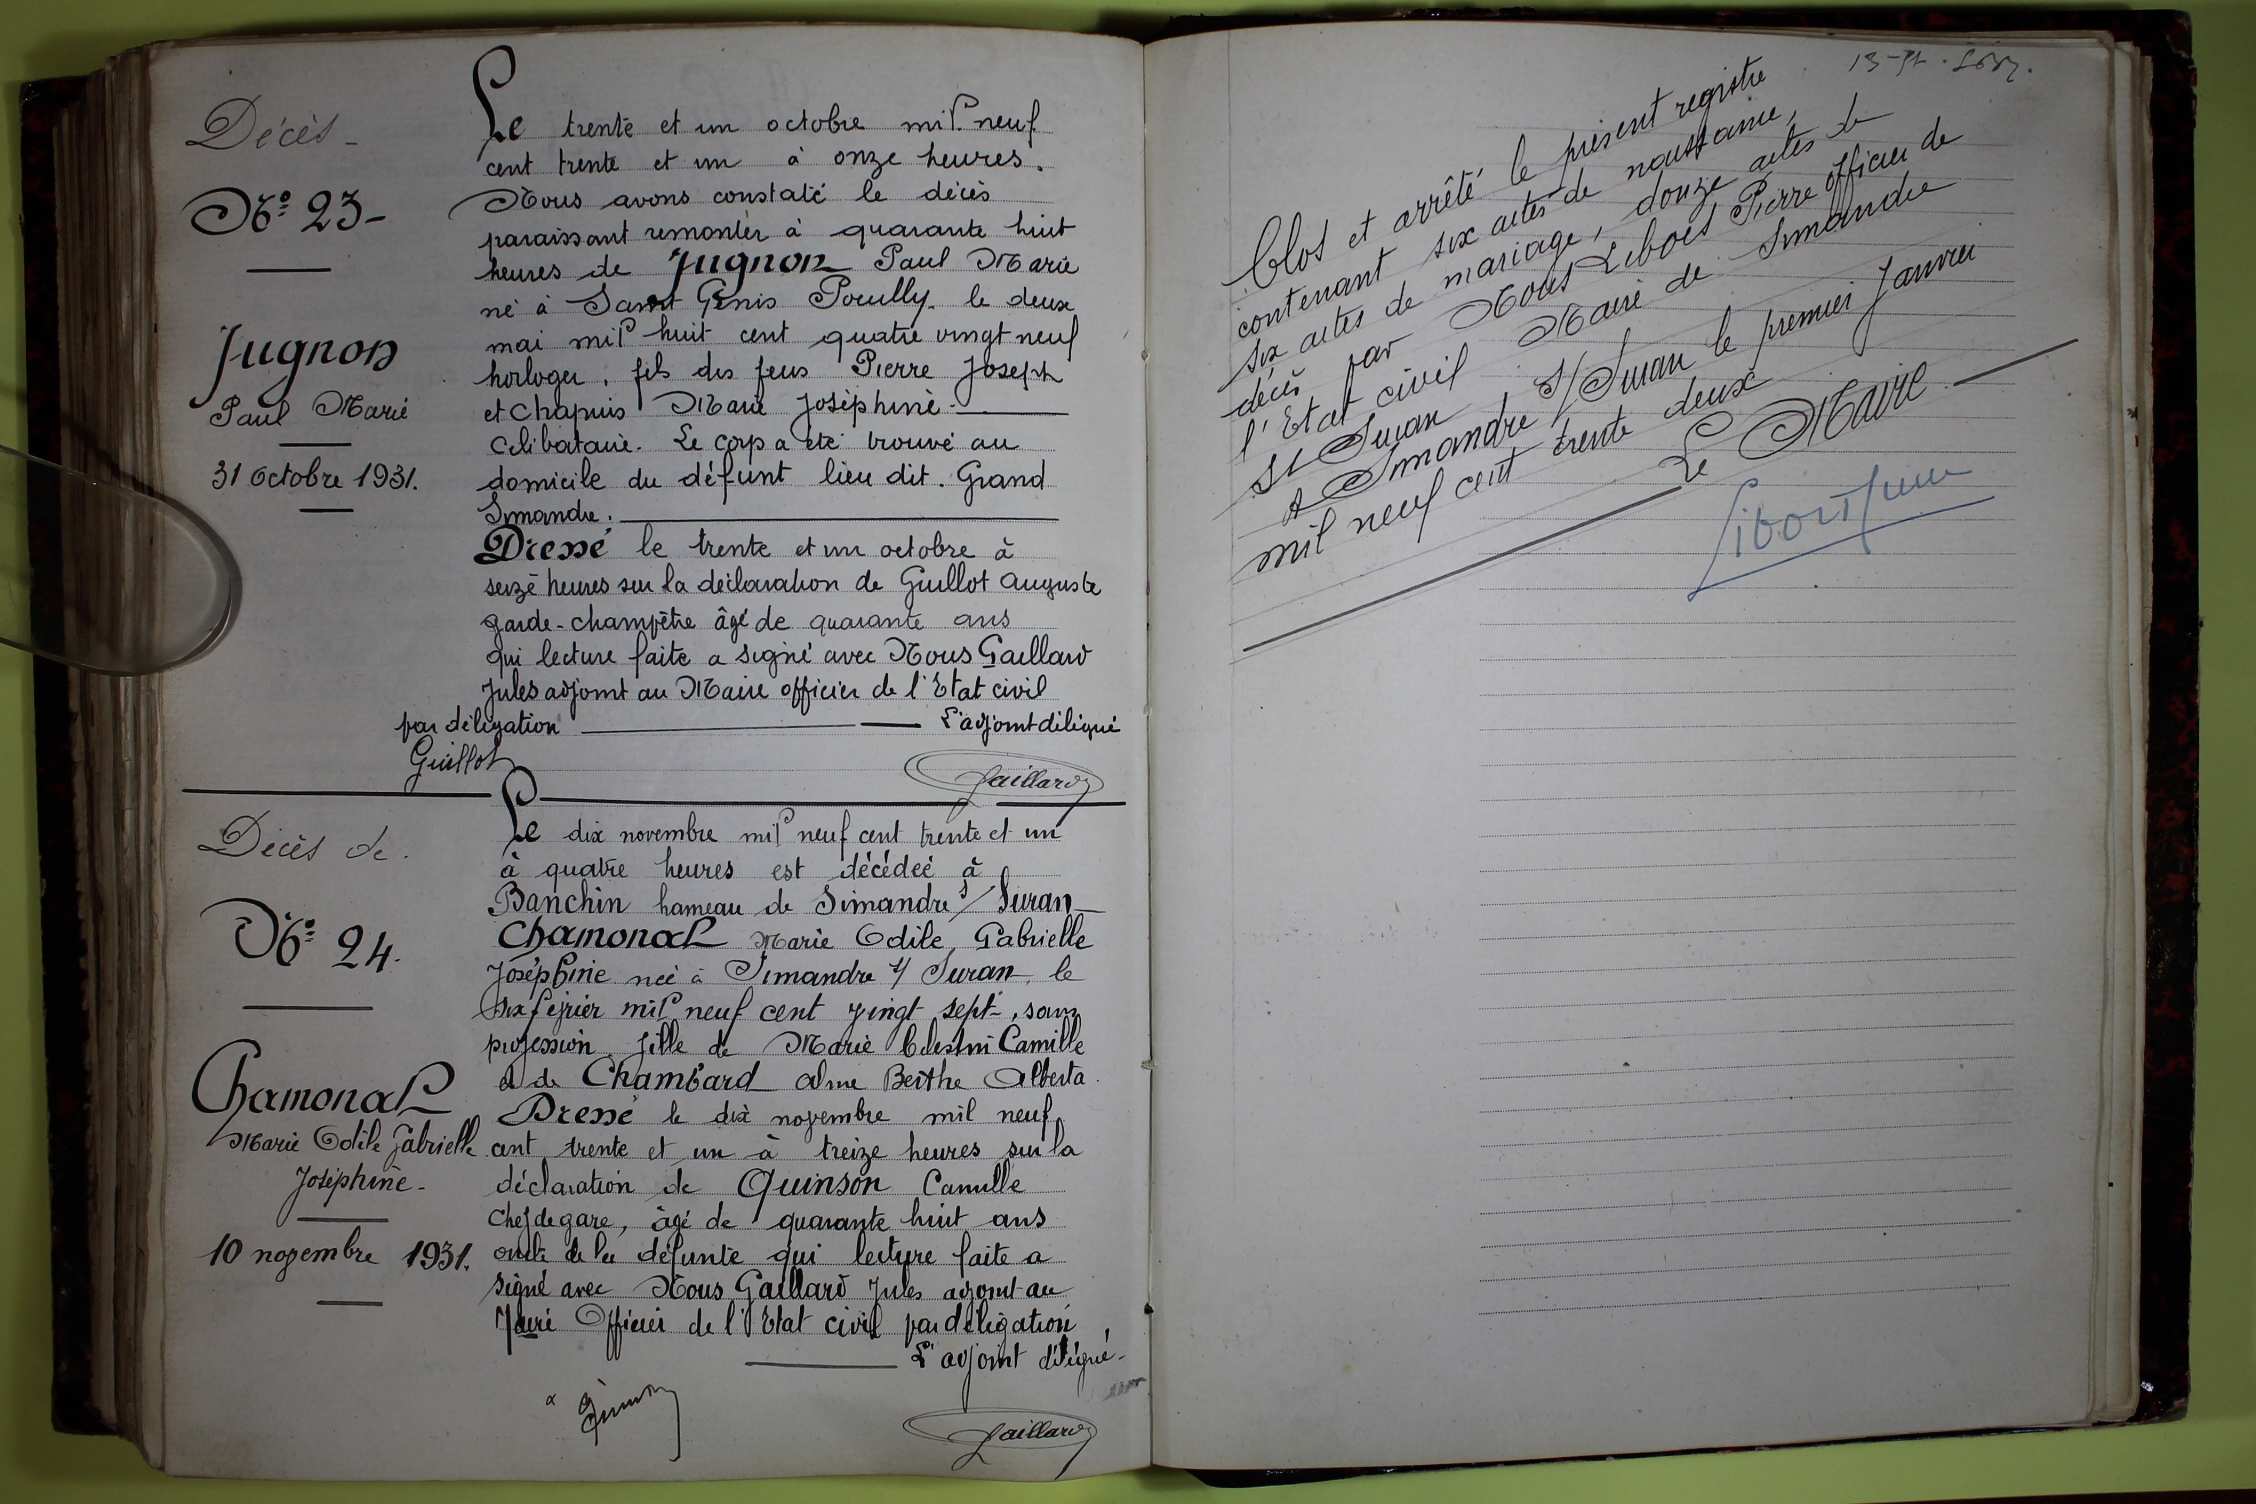 Décès -
Nº 23 -
Jugnon
Paul Marie
31 octobre 1931.
Le trente et un octobre mil neuf
cent trente et un à onze heures.
Nous avons constaté le décès
paraissant remonter à quarante huit
heures de Jugnon Paul Marie
né à Saint Genis Pouilly le deux
mai mil huit cent quatre vingt neuf
horloger, fils des feus Pierre Joseph
et Chapuis Marie Joséphine -
célibataire. Le corp a été trouvé au
domicile du défunt lieu dit. Grand
Simandre.
Dressé le trente et un octobre à
seize heures sur la déclaration de Guillot Auguste
garde-champêtre âgé de quarante ans
qui lecture faite a signé avec Nous Gaillard
Jules adjoint au Maire officier de l'Etat civil
par délégation L'adjoint délégué
Guillot
Gaillard
Décès de.
Nº 24.
Chamonal
Marie Odile Gabrielle
Joséphine -
10 novembre 1931.
Le dix novembre mil neuf cent trente et un
à quatre heures est décédée à
Banchin hameau de Simandre s/ Suran
Chamonal Marie Odile, Gabrielle
Joséphine née à Simandre s/ Suran, le
six février mil neuf cent vingt sept, sans
profession fille de Marie Célestin Camille
et de Chambard Berthe Alberta.
Dressé le dix novembre mil neuf
cent trente et un à treize heures sur la
déclaration de Quinson Camille
chef de gare, âgé de quarante huit ans
oncle de la défunte qui lecture faite a
signé avec Nous Gaillard Jules adjoint au
Maire Officier de l'Etat civil par délégation
L'adjoint délégué -
Gaillard
Clos et arrêté le présent registre
contenant six actes de naissance,
six actes de mariage, douze actes de
décès par Nous Libois Pierre officier de
l'Etat civil Maire de Simandre
s/ Suran
A Simandre s/ Suran le premier Janvier
mil neuf cent trente deux
Le Maire